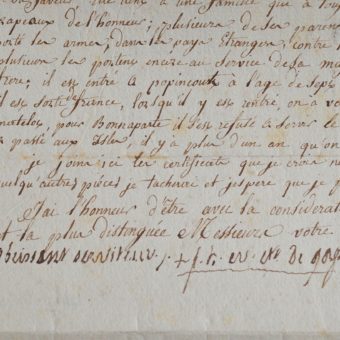 en faveur tient à une famille que a touj
drapeaux de l'honneur; plusieurs de ses paren
porté les armes; dans les pays Etrangers, contre l
plusieurs les portent encore au service de sa ma
frere; il est entré a popincourt a l'age de sept
il est sorti france, lorsqu'il y est rentré, on a vo
matelot, pour Bonnaparte il s'est refusé a servir le
passé aux Isles, il y a plus d'un an qu'on
je joins ici les certificats que je croit ne
quelqu'autres pièces je tacherai et j'espere que je p
J'ai l'honneur d'être avec la considerat
et la plus distinguée Messieurs votre
obeissant serviteur